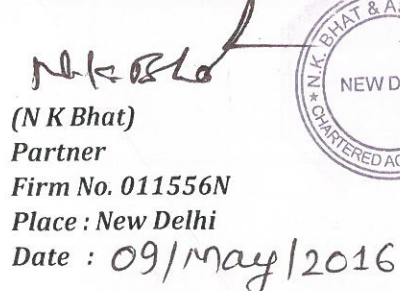 N.K. Bhat
(N K Bhat)
Partner
Firm No. 011556N
Place : New Delhi
Date : 09/May/2016
N.K. BHAT & A
NEW D
CHARTERED AC